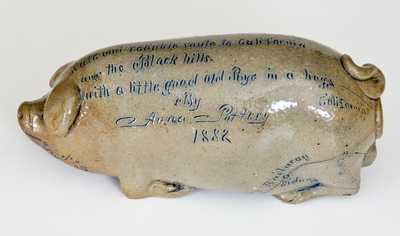 and reliable route to California
and the Black hills.
with a little good old Rye in a hogs
By
Anna Pottery
1882
California
Railway